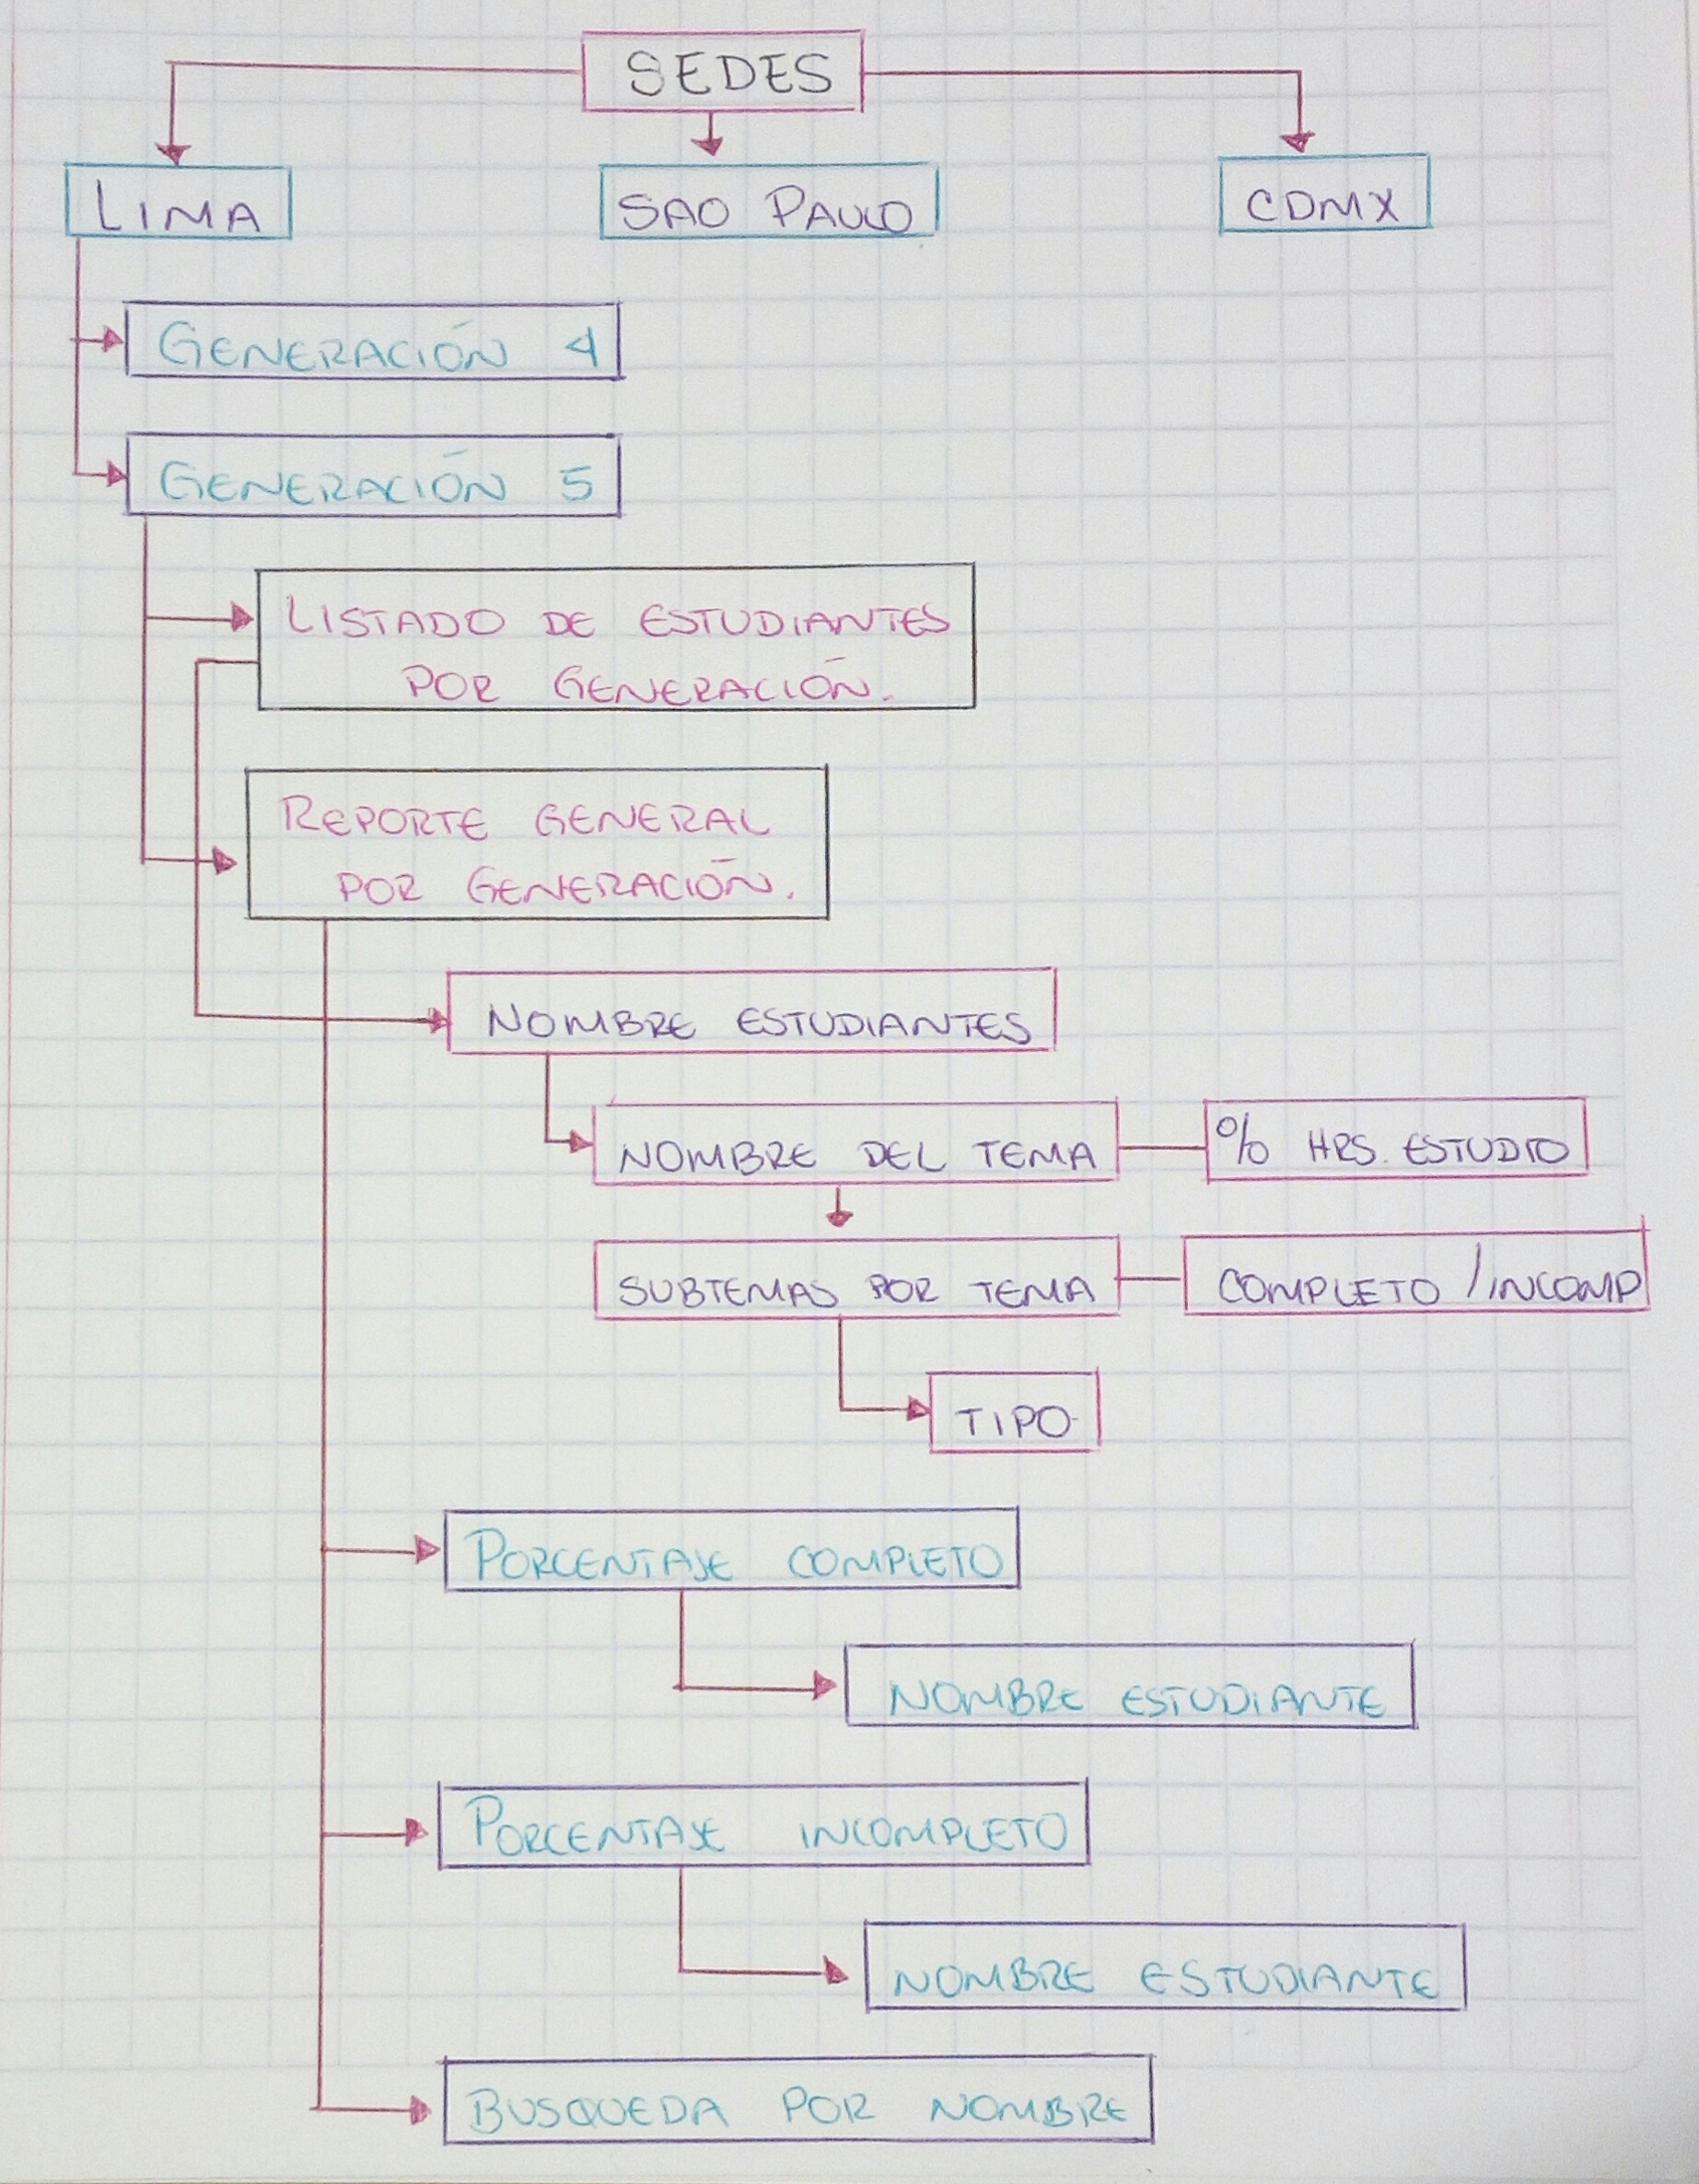 SEDES
LIMA
SAO PAULO
CDMX
GENERACIÓN 4
GENERACIÓN 5
LISTADO DE ESTUDIANTES
POR GENERACIÓN.
REPORTE GENERAL
POR GENERACIÓN.
NOMBRE ESTUDIANTES
NOMBRE DEL TEMA
% HRS. ESTUDIO
SUBTEMAS POR TEMA
COMPLETO / INCOMP
TIPO
PORCENTAJE COMPLETO
NOMBRE ESTUDIANTE
PORCENTAJE INCOMPLETO
NOMBRE ESTUDIANTE
BUSQUEDA POR NOMBRE